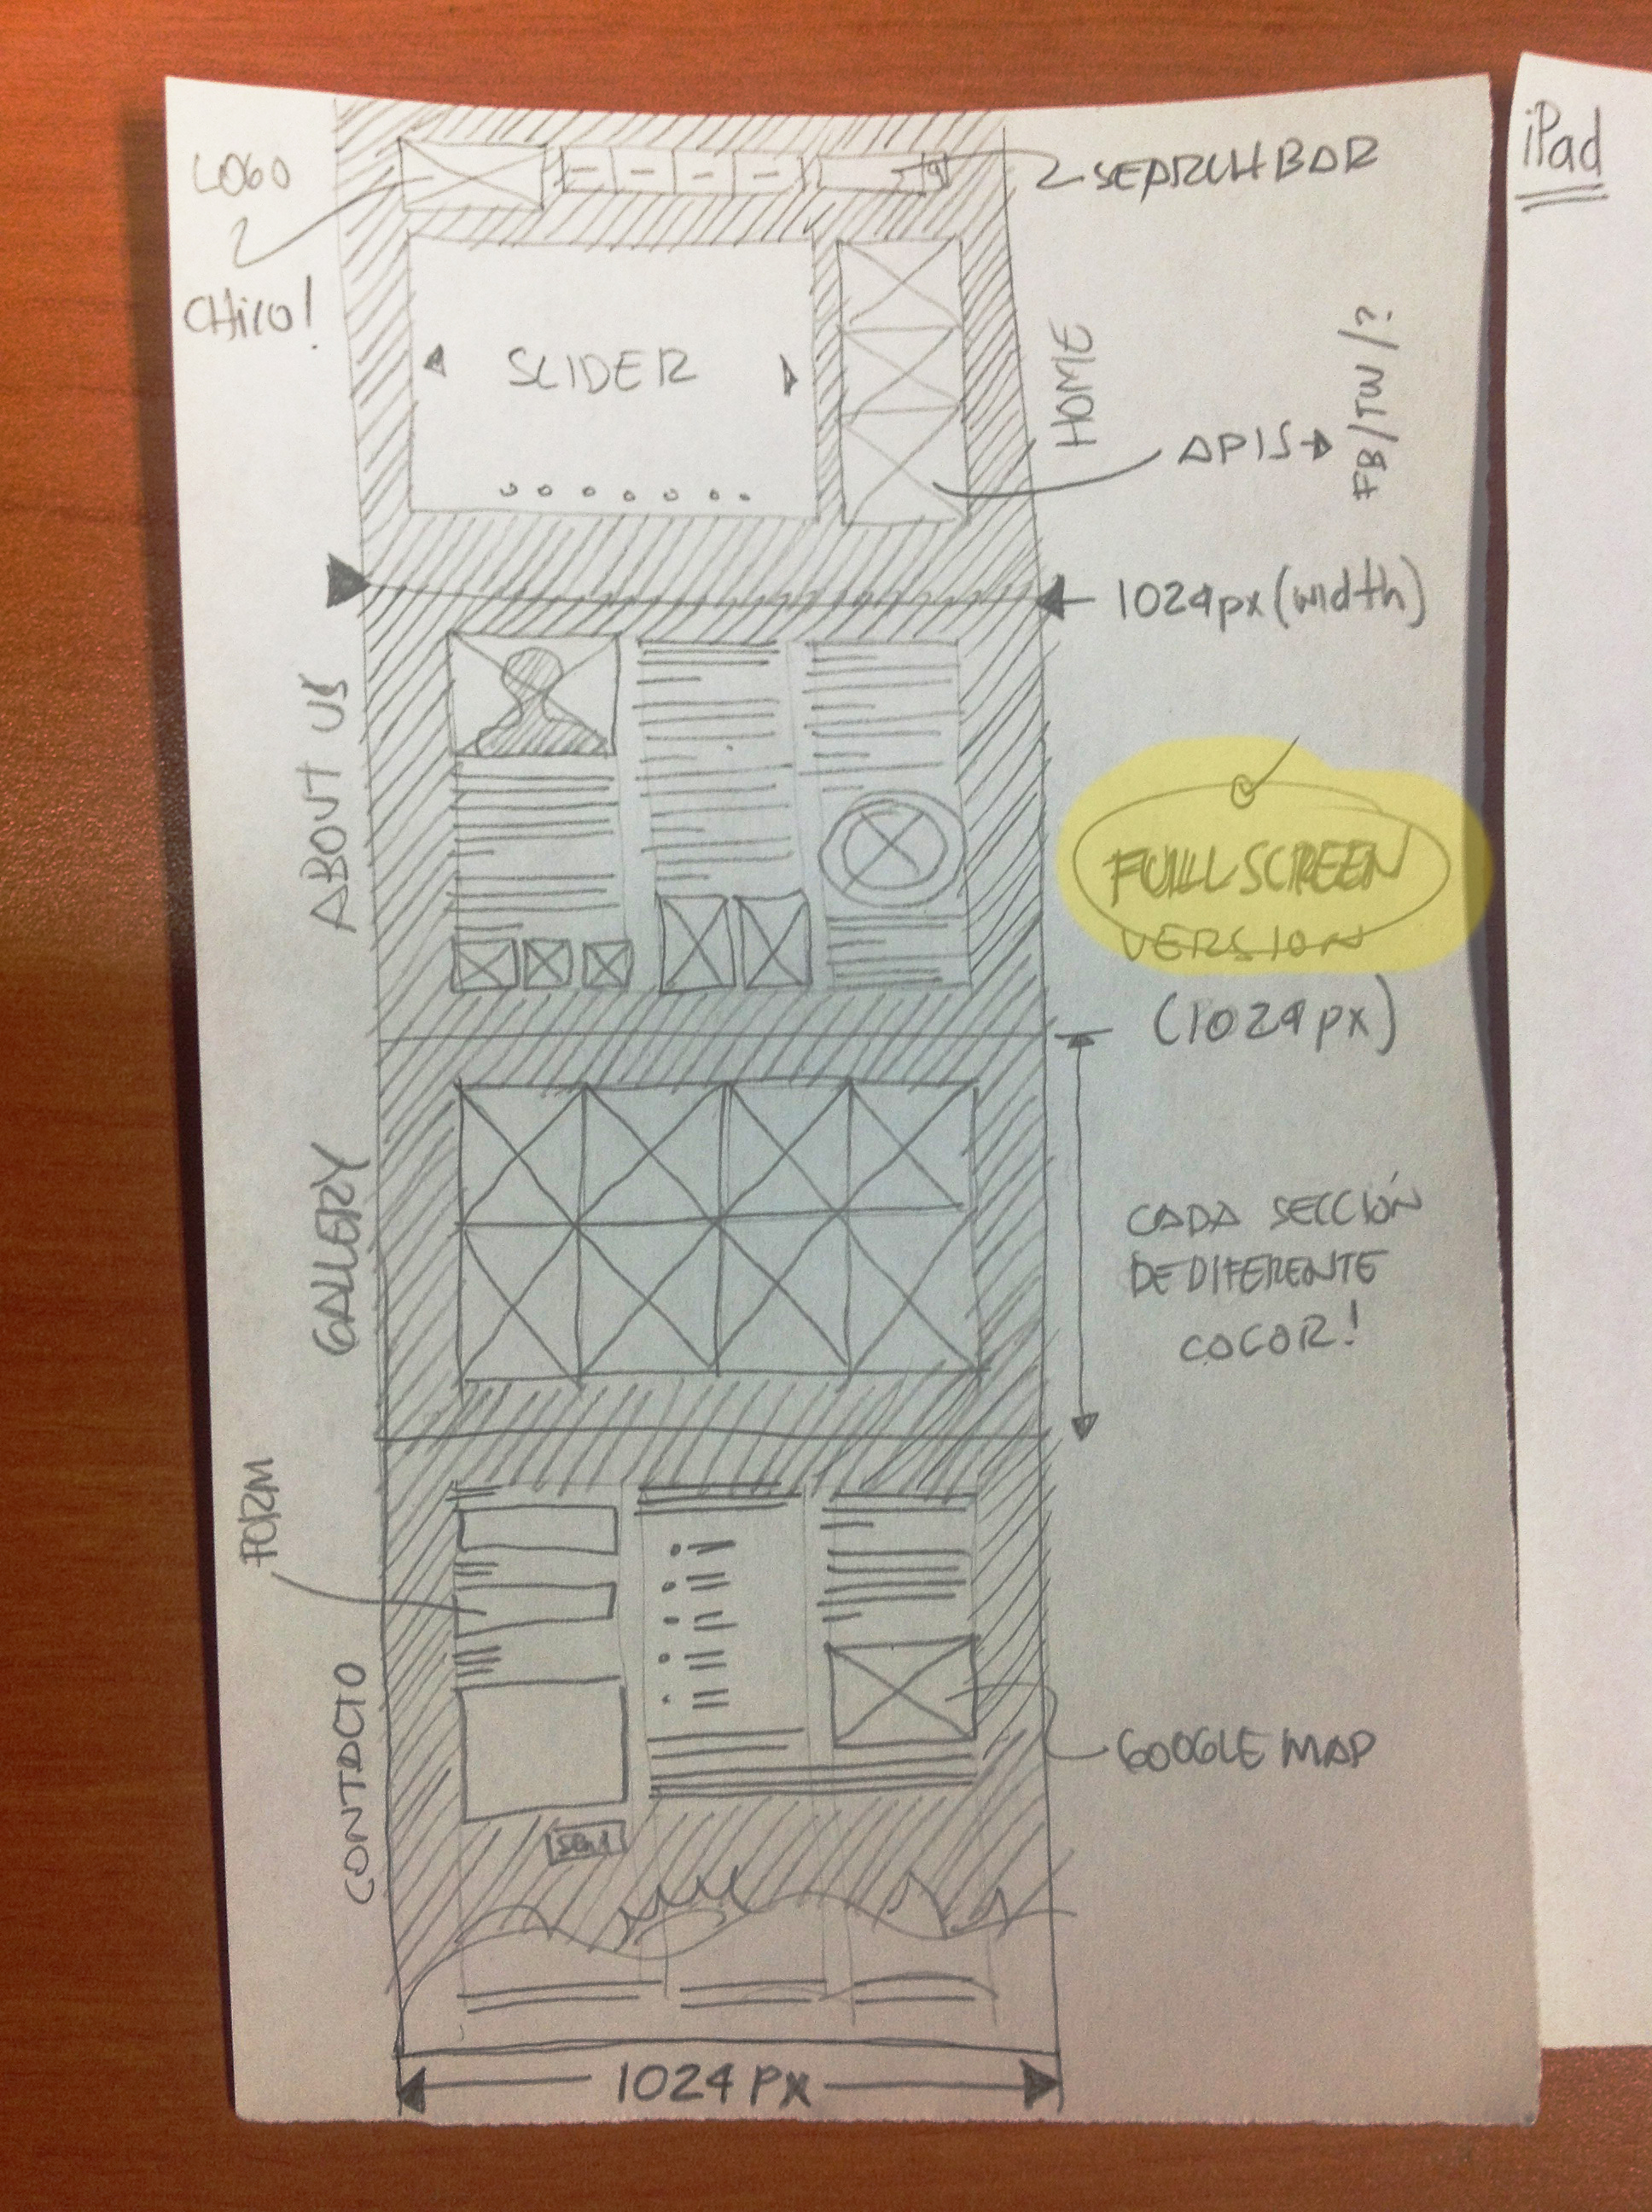 LOGO
CHILO!
SEARCH BAR
iPad
SLIDER
HOME
APIS
FB/TW/?
1024px (width)
ABOUT US
FULLSCREEN
VERSION
(1024px)
GALLERY
CADA SECCIÓN
DE DIFERENTE
COLOR!
FORM
CONTACTO
GOOGLE MAP
Send
1024 PX